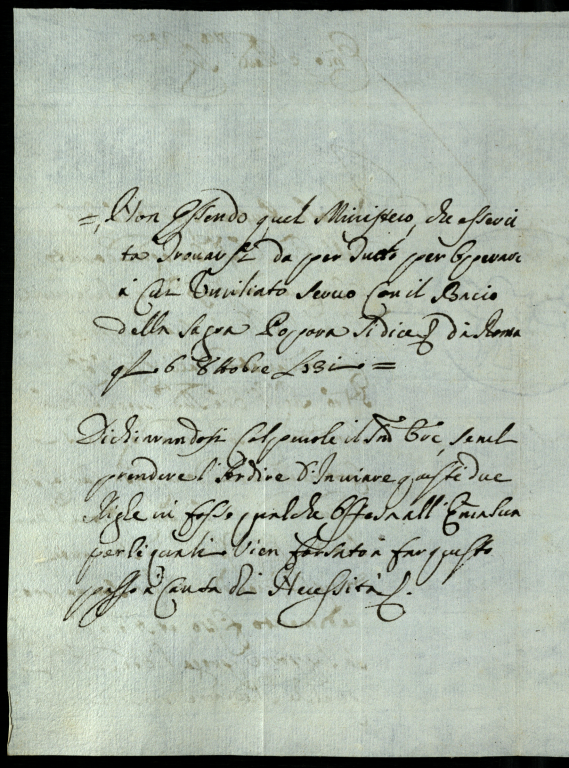 =, Non Essendo quel Ministero, che esserci
ta trovarsi da per tutto per Operare
à Umiliato servo Con il Bacio
della Sagra Porpora si dice di Roma
6 Ottobre =
Dichiarandosi Colpevole il sud. se nel
prendere l'Ardire d'Inviare queste due
Righe vi fosse qualche Offesa all' Em.a Sua
per li quali vien forsato à far questo
passo à Causa di Necessità